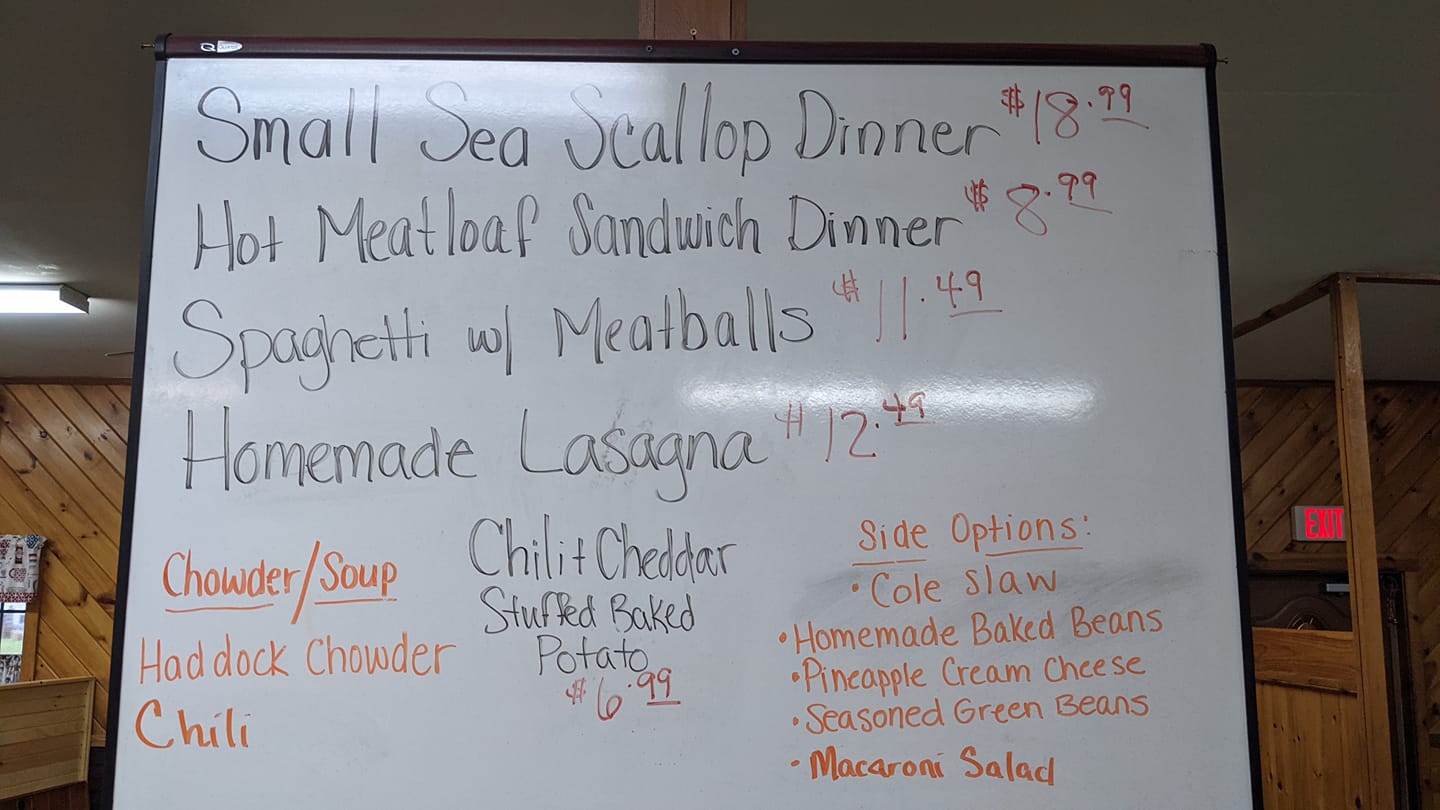 Quartet
Small Sea Scallop Dinner $18.99
Hot Meatloaf Sandwich Dinner $8.99
Spaghetti w/ Meatballs $11.49
Homemade Lasagna $12.49
Chowder/Soup
Haddock Chowder
Chili
Chili + Cheddar
Stuffed Baked
Potato
$6.99
Side Options:
• Cole Slaw
• Homemade Baked Beans
• Pineapple Cream Cheese
• Seasoned Green Beans
• Macaroni Salad
EXIT